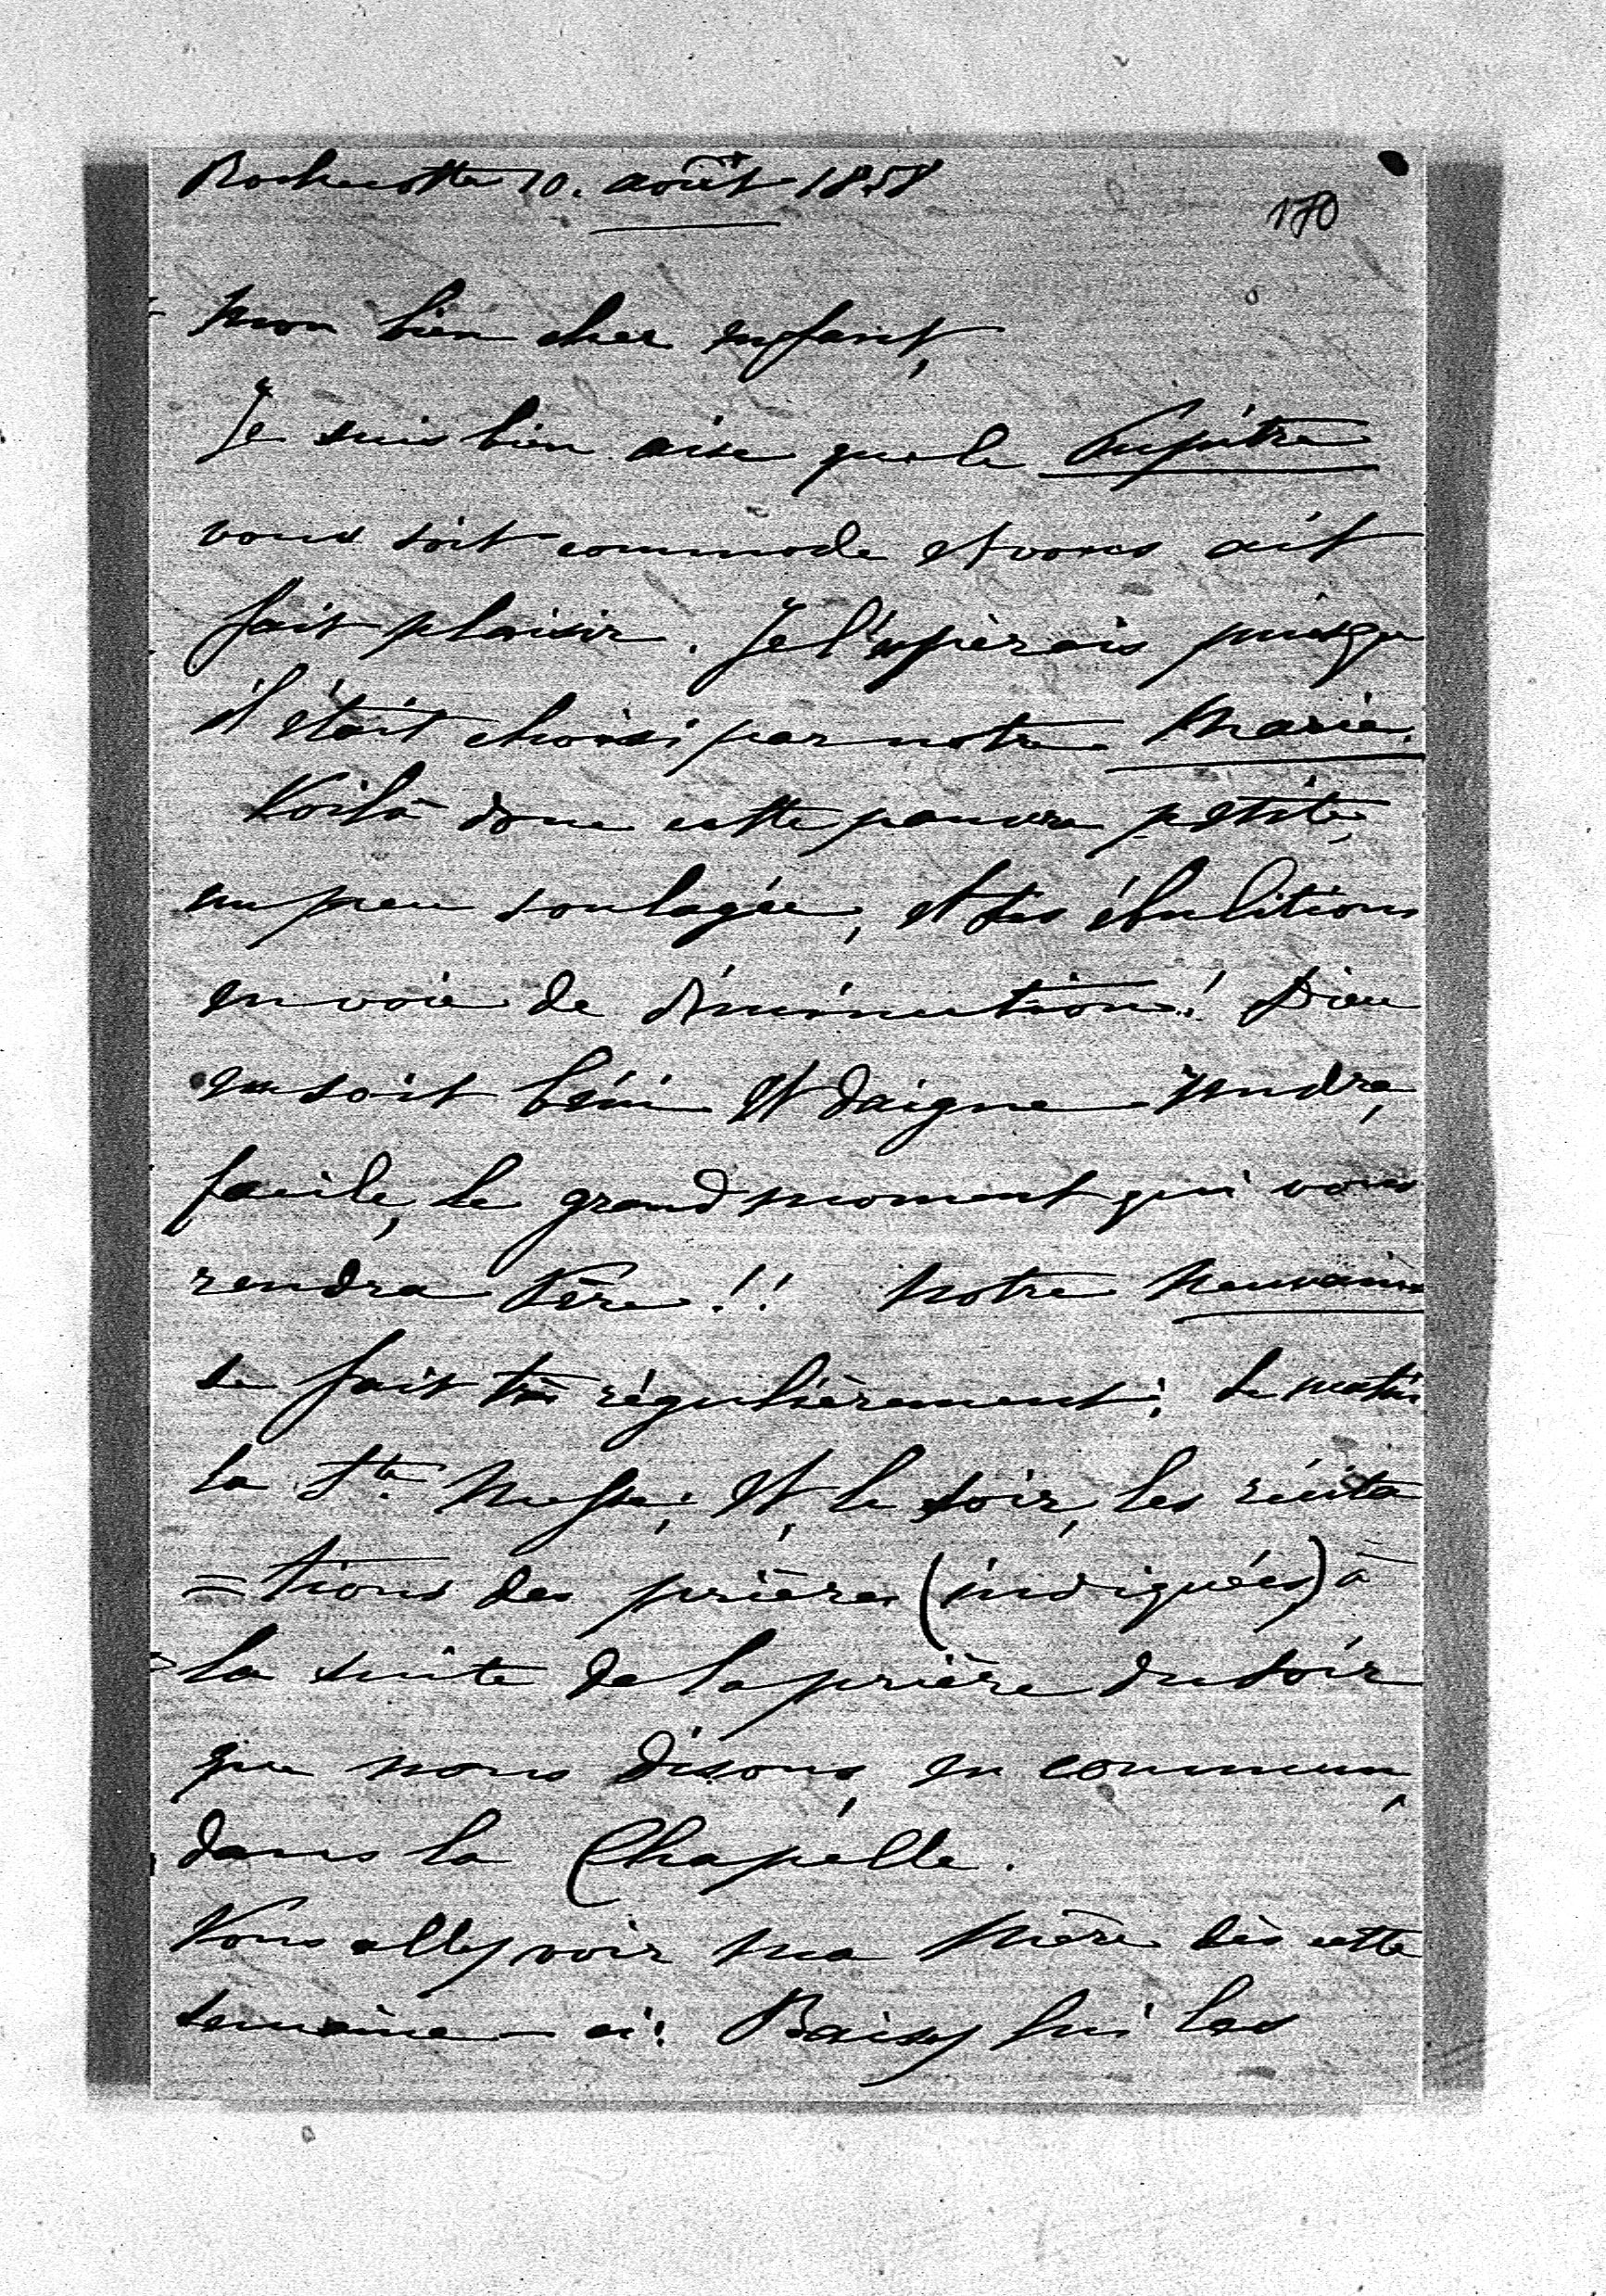 Rochecotte 10. août 1858
170
Mon bien cher enfant,
Je suis bien aise que le Pupitre
vous soit commode et vous ait
fait plaisir. Je l'espèrais puisqu
il était choisi par notre Marie.
Voilà donc cette pauvre petite,
un peu soulagée, et ses ébulitions
en voie de diminution! Dieu
en soit béni et daigne rendre,
facile, le grand moment qui vous
rendra Père!! Notre Neuvaine
se fait très régulièrement; le matin
la Ste Messe; et, le soir, les récita
=tions des prières (indiquées) à
la suite de la prière du soir
que nous disons, en commun,
dans la Chapelle.
Vous allez voir ma Mère dès cette
semaine-ci: Baisez lui les